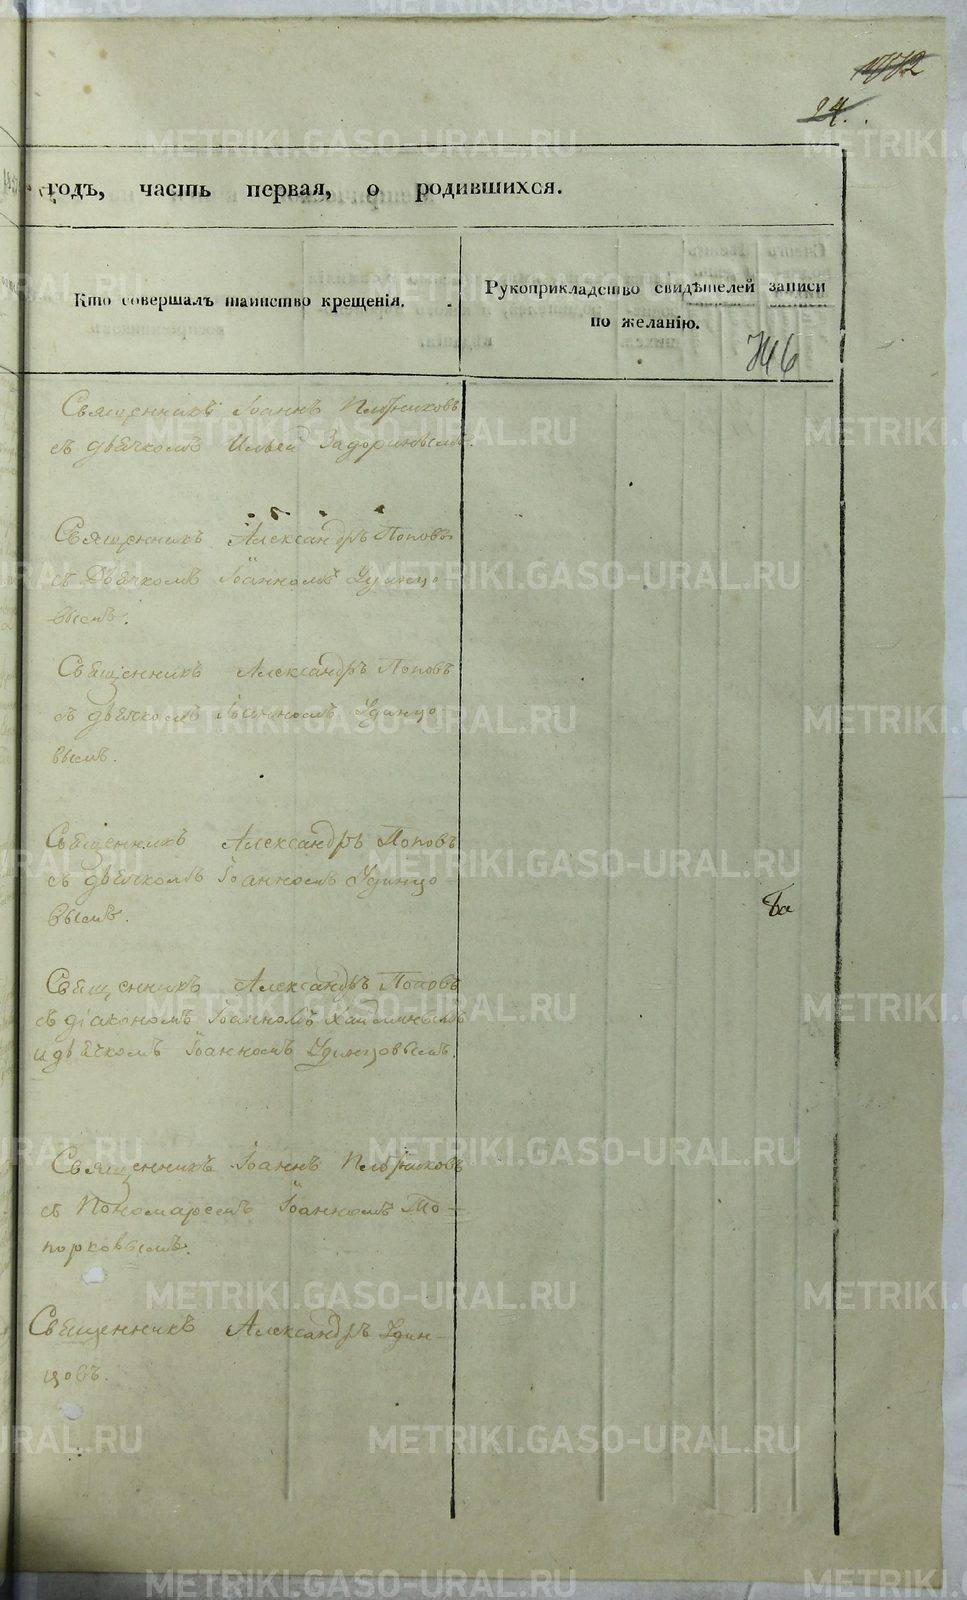 24.
годъ, часть первая, о родившихся.
Кто совершалъ таинство крещенія.
Рукоприкладство свидѣтелей записи
по желанію.
746
Священникъ Іоаннъ Плотниковъ
съ дьячкомъ Ильей Задоринымъ.
Священникъ Александръ Поповъ
съ Дьячкомъ Іоанномъ Удинцо-
вымъ.
Священникъ Александръ Поповъ
съ дьячкомъ Іоанномъ Удинцо
вымъ.
Священникъ Александръ Поповъ
съ дьячкомъ Іоанномъ Удинцо-
вымъ.
Священникъ Александръ Поповъ
съ діакономъ Іоанномъ
и дьячкомъ Іоанномъ Удинцовымъ.
Священникъ Іоаннъ Плотниковъ
съ Пономаремъ Іоанномъ То-
порковымъ.
Священникъ Александръ Удин-
цовъ.
METRIKI.GASO-URAL.RU